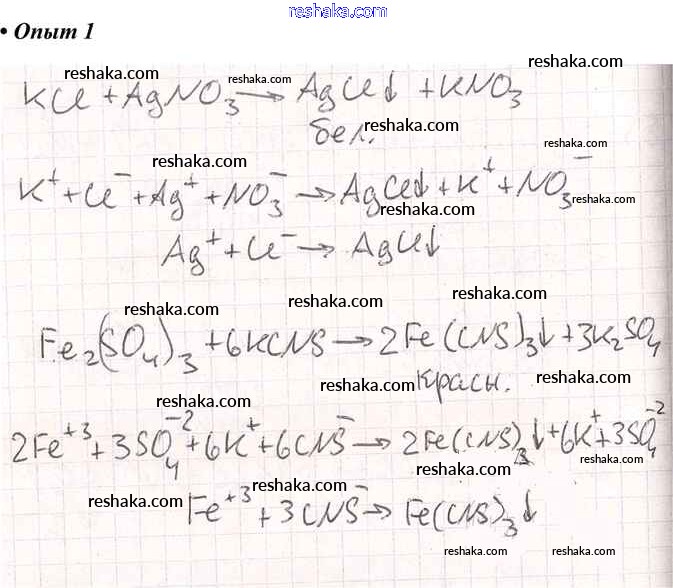 reshaka.com
• Опыт 1
reshaka.com reshaka.com reshaka.com
KCl + AgNO₃ → AgCl↓ + KNO₃
бел. reshaka.com reshaka.com
reshaka.com
K⁺ + Cl⁻ + Ag⁺ + NO₃⁻ → AgCl↓ + K⁺ + NO₃⁻
reshaka.com reshaka.com
Ag⁺ + Cl⁻ → AgCl↓
reshaka.com reshaka.com reshaka.com
Fe₂(SO₄)₃ + 6KCNS → 2Fe(CNS)₃↓ + 3K₂SO₄
reshaka.com красн. reshaka.com
reshaka.com
2Fe⁺³ + 3SO₄⁻² + 6K⁺ + 6CNS⁻ → 2Fe(CNS)₃↓ + 6K⁺ + 3SO₄⁻²
reshaka.com reshaka.com
reshaka.com reshaka.com
Fe⁺³ + 3CNS⁻ → Fe(CNS)₃↓
reshaka.com reshaka.com